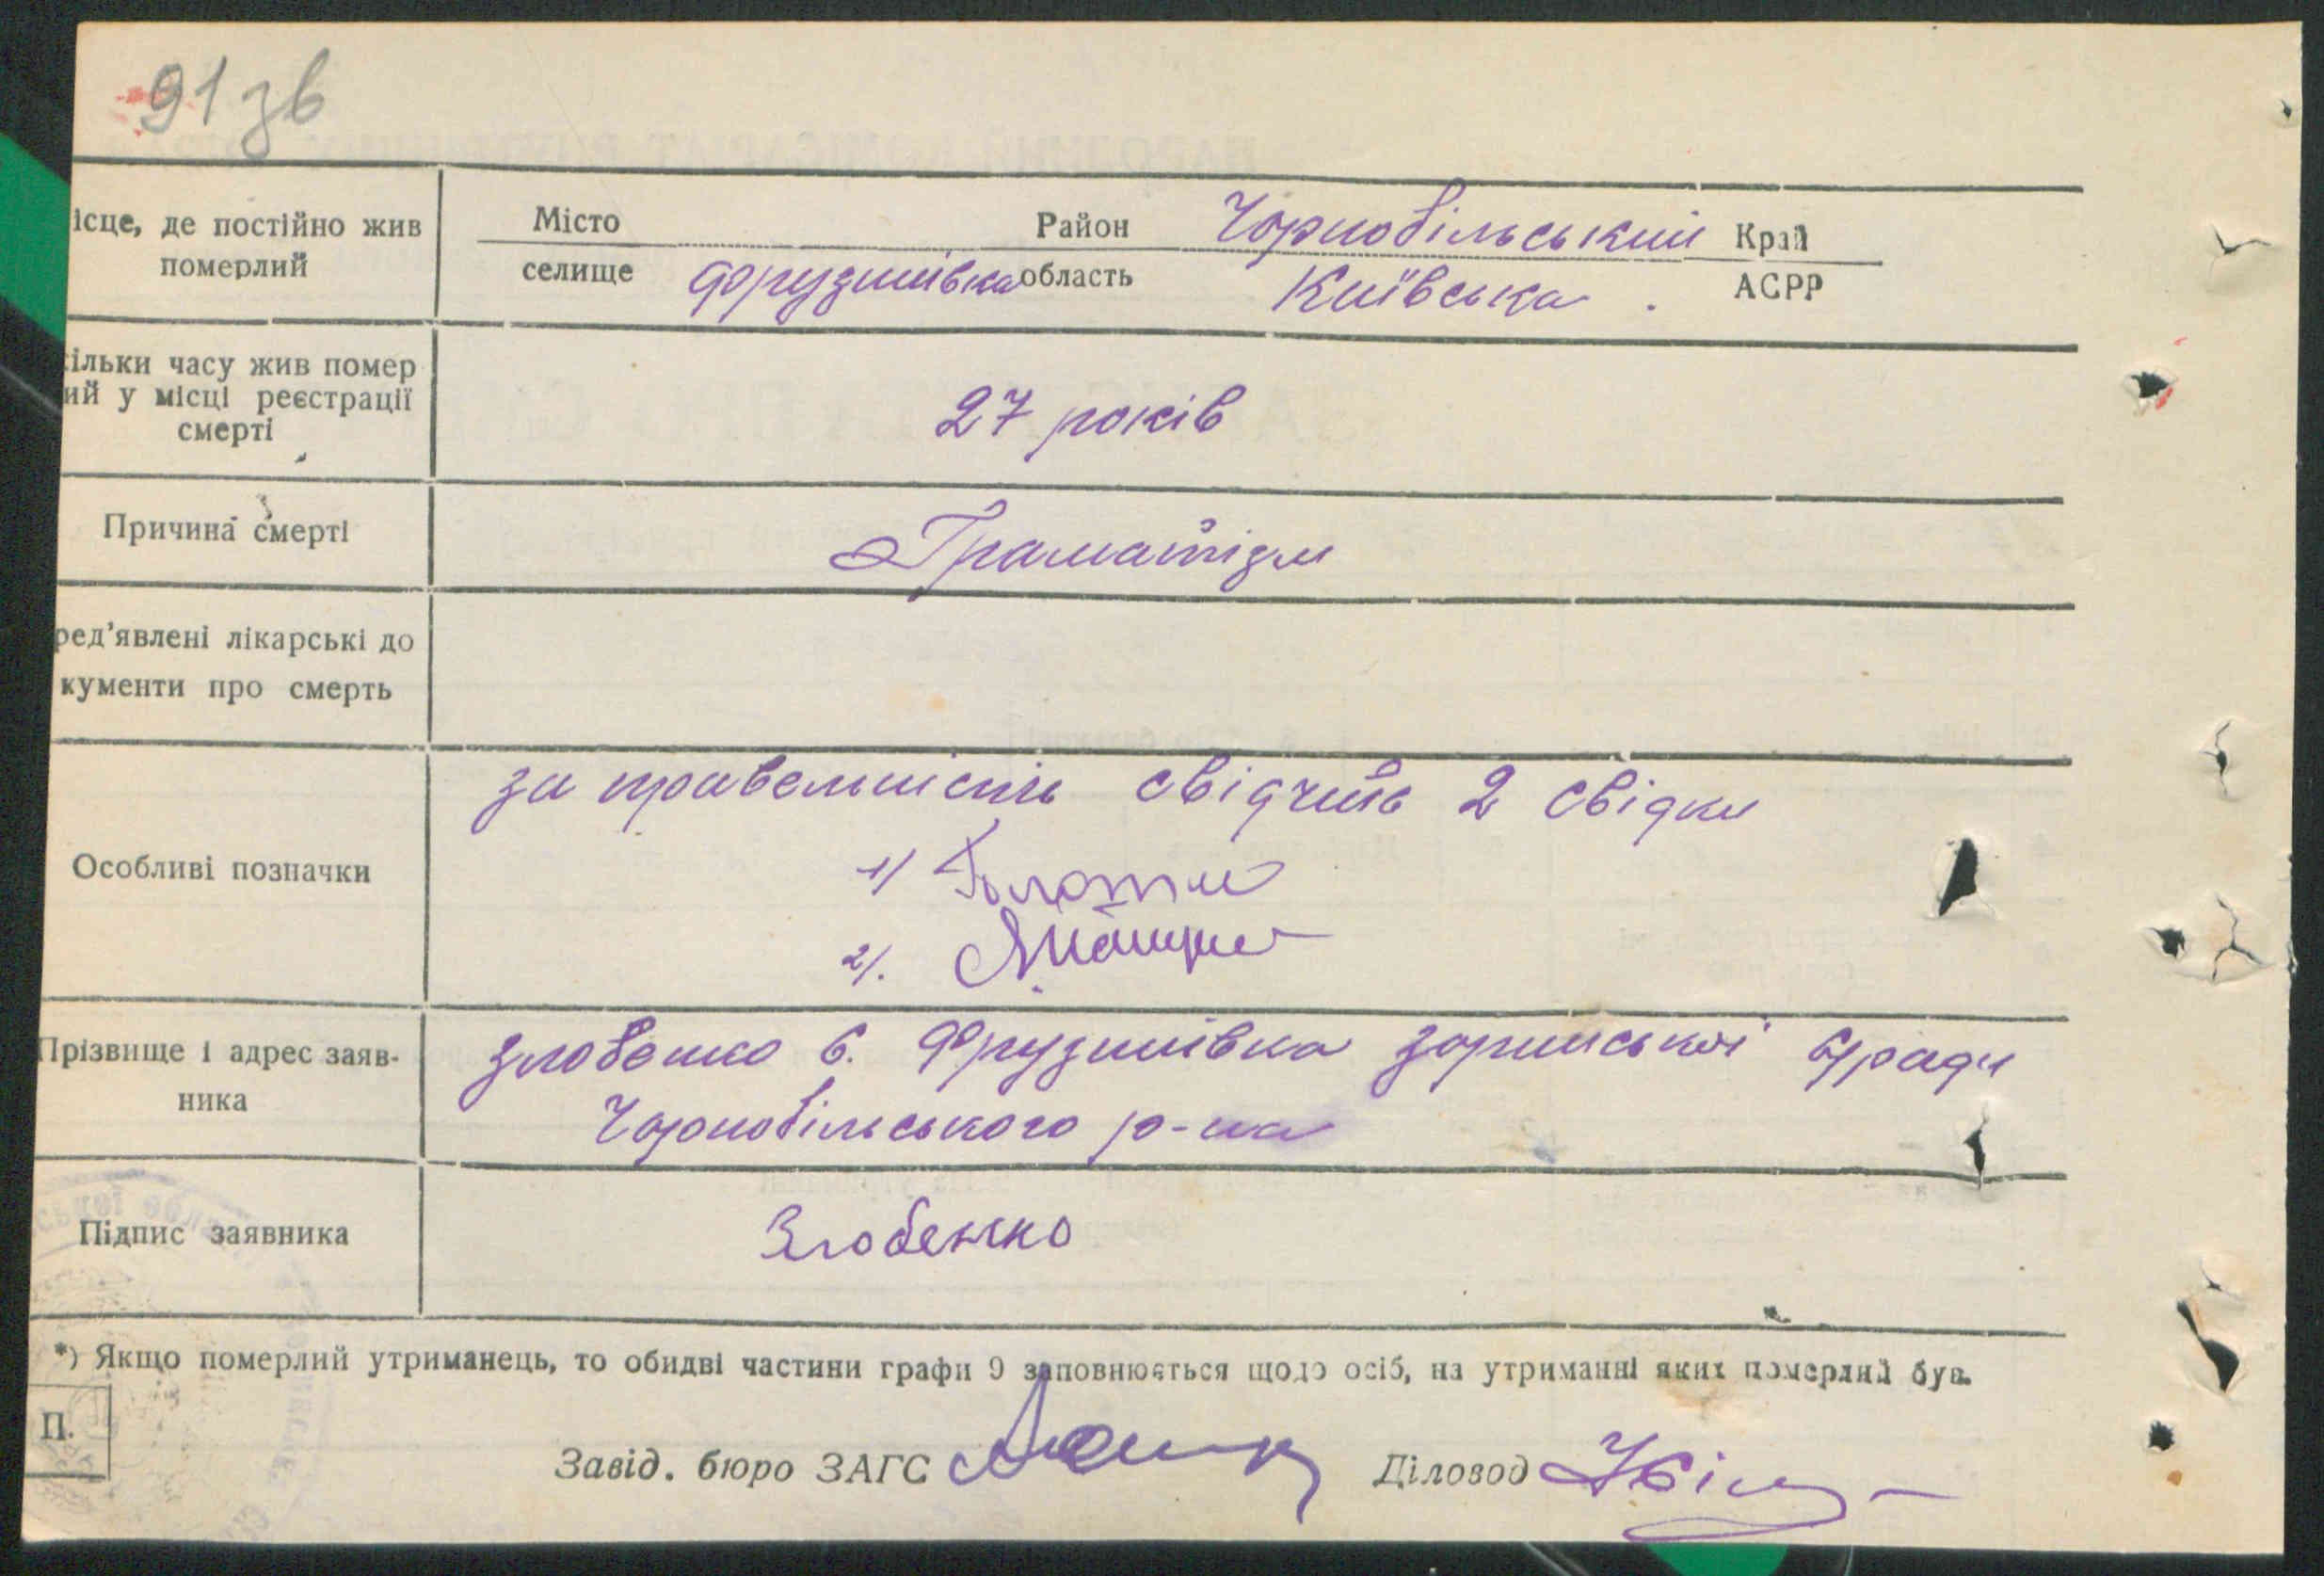 91зв
ісце, де постійно жив
померлий
Місто Район Чорнобільський Край
селище Фрузинівка область Київська . АСРР
ільки часу жив помер
ий у місці реєстрації
смерті
27 років
Причина смерті
Траматізм
ред'явлені лікарські до
кументи про смерть
Особливі позначки
за правельність свідчить 2 свідки
1/
2/.
Прізвище і адрес заяв-
ника
Злобенко с. Фрузинівка зоринської с/ради
Чорнобільського р-на
Підпис заявника
Злобенко
*) Якщо померлий утриманець, то обидві частини графи 9 заповнюється щодо осіб, на утриманні яких померлий був.
П.
Завід. бюро ЗАГС Діловод